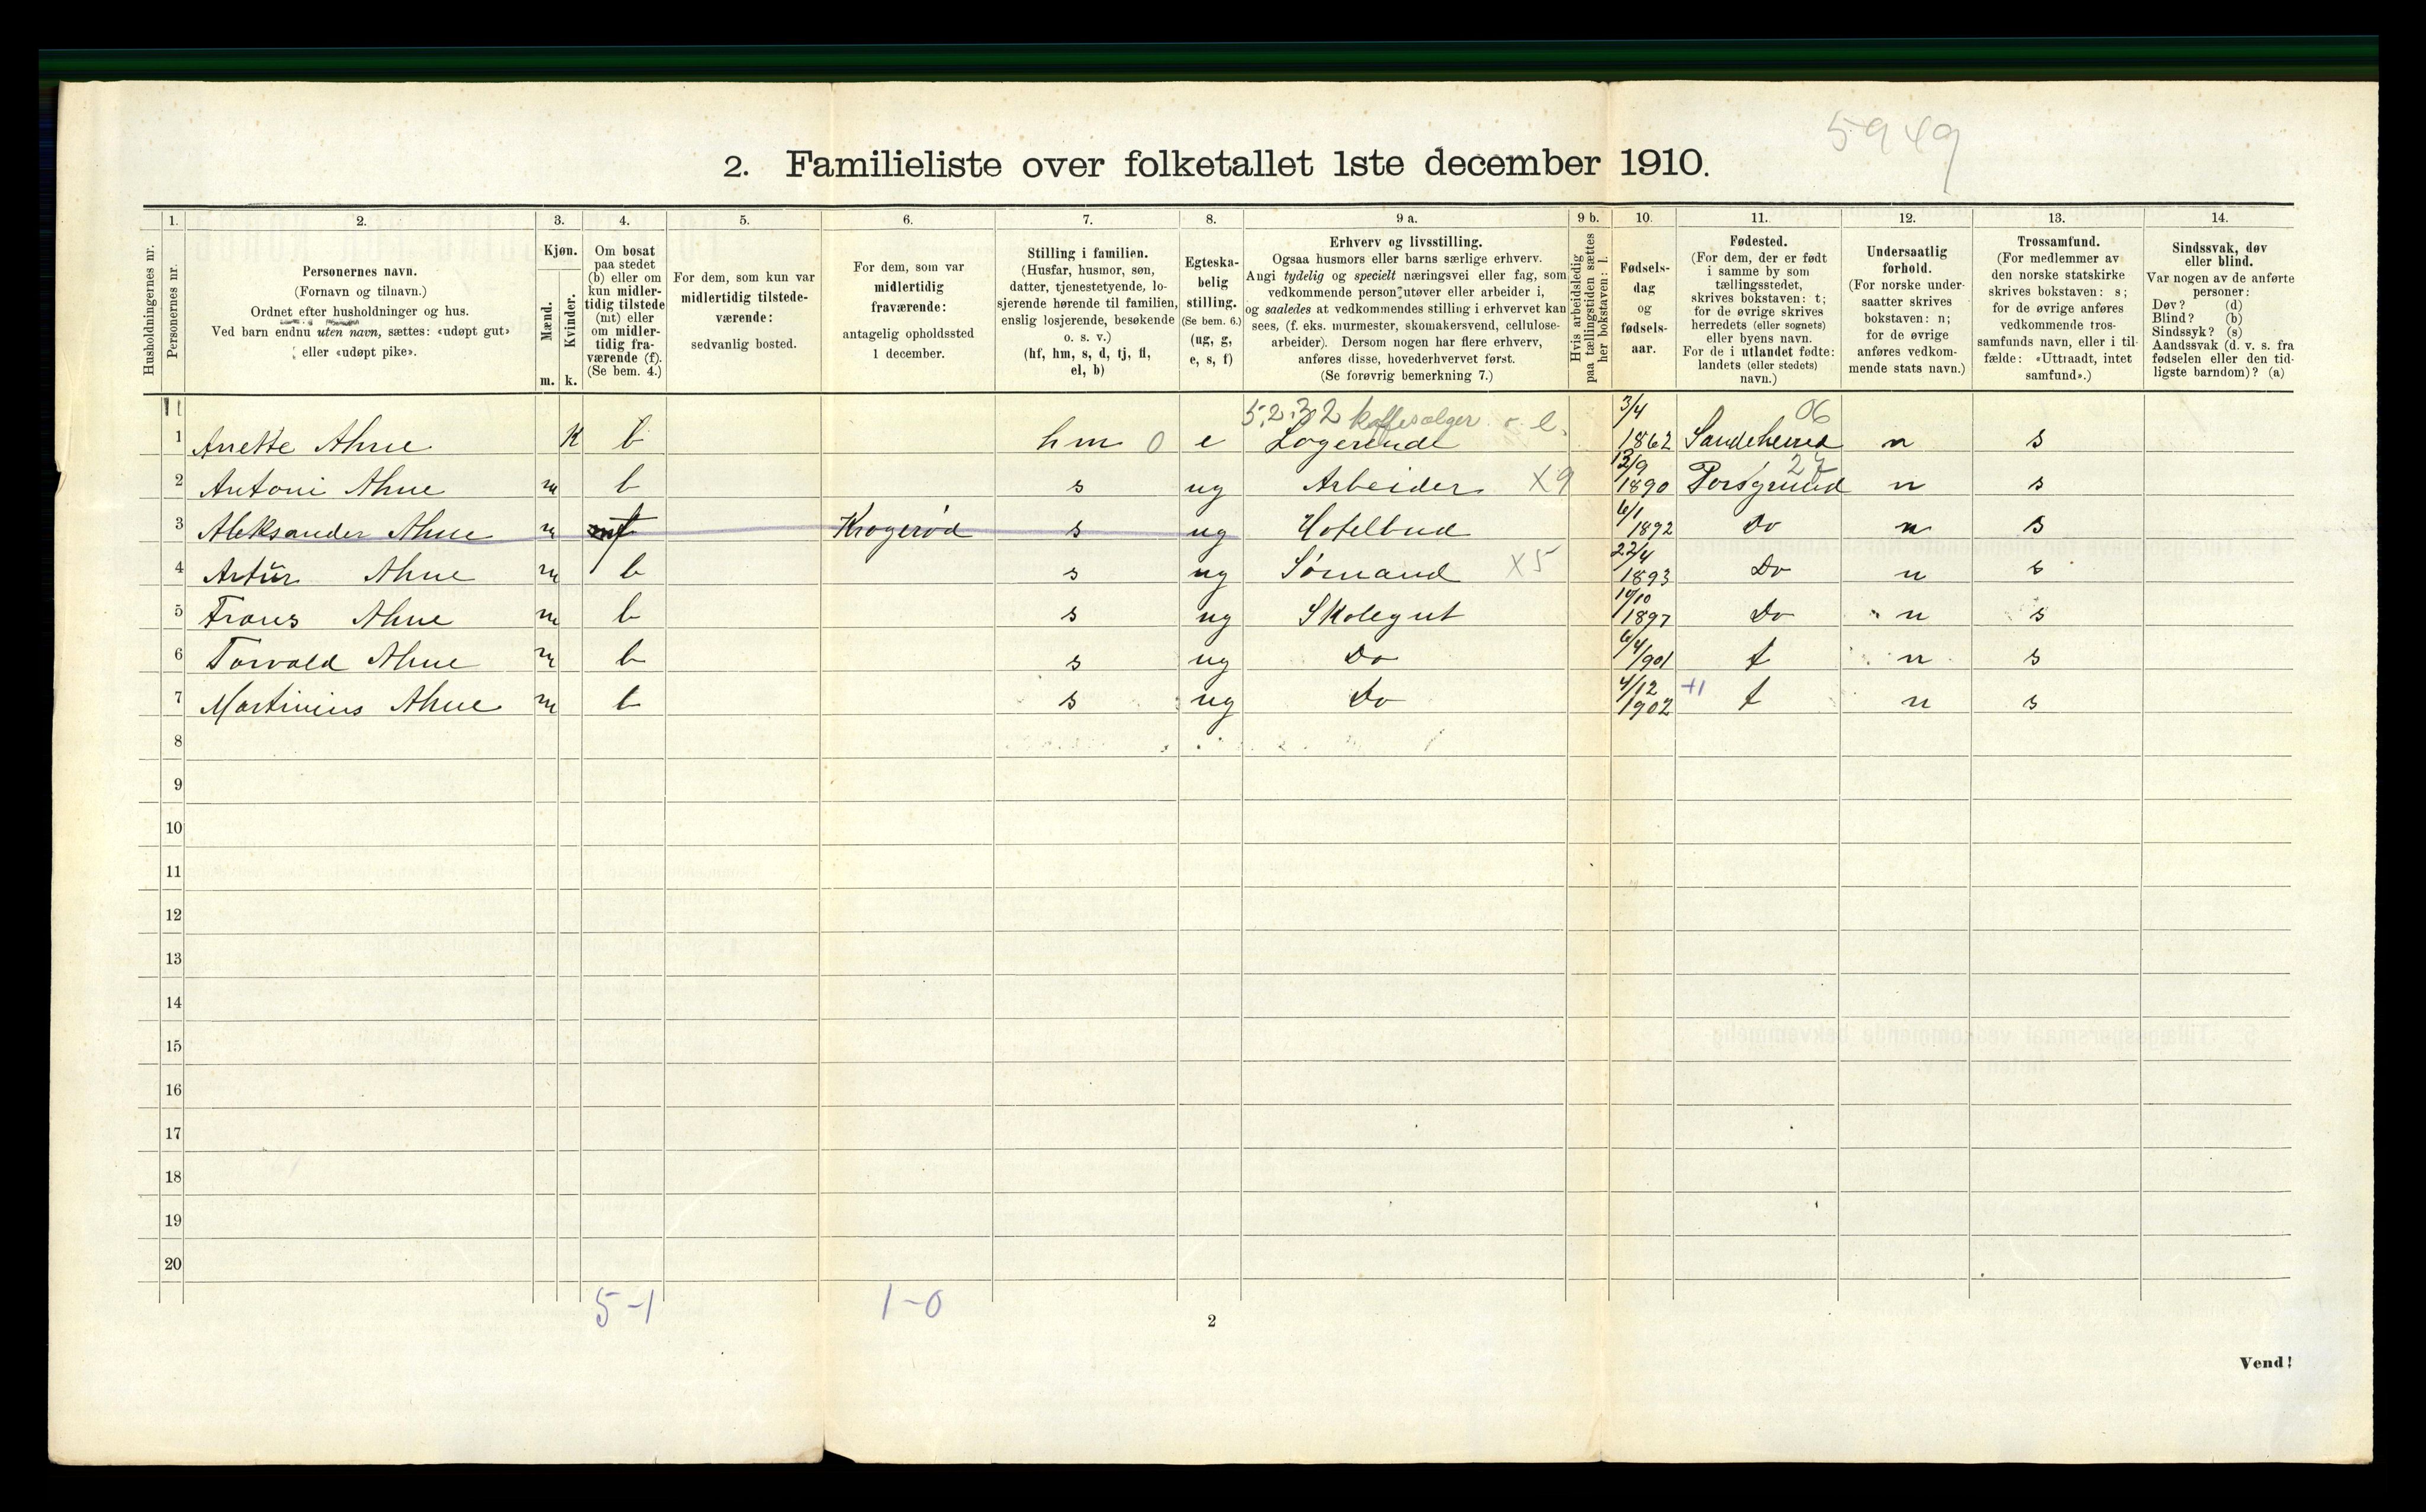 5949
2. Familieliste over folketallet 1ste december 1910.
1. 2. 3. 4. 5. 6. 7. 8. 9 a. 9 b. 10. 11. 12. 13. 14.
Husholdningernes nr.
Personernes nr.
Personernes navn.
(Fornavn og tilnavn.)
Ordnet efter husholdninger og hus.
Ved barn endnu uten navn, sættes: «udøpt gut»
eller «udøpt pike».
Kjøn.
Mænd.
Kvinder.
m. k.
Om bosat
paa stedet
(b) eller om
kun midler-
tidig tilstede
(mt) eller
om midler-
tidig fra-
værende (f).
(Se bem. 4.)
For dem, som kun var
midlertidig tilstede-
værende:
sedvanlig bosted.
For dem, som var
midlertidig
fraværende:
antagelig opholdssted
1 december.
Stilling i familien.
(Husfar, husmor, søn,
datter, tjenestetyende, lo-
sjerende hørende til familien,
enslig losjerende, besøkende
o. s. v.)
(hf, hm, s, d, tj, fl,
el, b)
Egteska-
belig
stilling.
(Se bem. 6.)
(ug, g,
e, s, f)
Erhverv og livsstilling.
Ogsaa husmors eller barns særlige erhverv.
Angi tydelig og specielt næringsvei eller fag, som
vedkommende person utøver eller arbeider i,
og saaledes at vedkommendes stilling i erhvervet kan
sees, (f. eks. murmester, skomakersvend, cellulose-
arbeider). Dersom nogen har flere erhverv,
anføres disse, hovederhvervet først.
(Se forøvrig bemerkning 7.)
Hvis arbeidsledig
paa tællingstiden sættes
her bokstaven: l.
Fødsels-
dag
og
fødsels-
aar.
Fødested.
(For dem, der er født
i samme by som
tællingsstedet,
skrives bokstaven: t;
for de øvrige skrives
herredets (eller sognets)
eller byens navn.
For de i utlandet fødte:
landets (eller stedets)
navn.)
Undersaatlig
forhold.
(For norske under-
saatter skrives
bokstaven: n;
for de øvrige
anføres vedkom-
mende stats navn.)
Trossamfund.
(For medlemmer av
den norske statskirke
skrives bokstaven: s;
for de øvrige anføres
vedkommende tros-
samfunds navn, eller i til-
fælde: «Uttraadt, intet
samfund».)
Sindssvak, døv
eller blind.
Var nogen av de anførte
personer:
Døv? (d)
Blind? (b)
Sindssyk? (s)
Aandssvak (d. v. s. fra
fødselen eller den tid-
ligste barndom)? (a)
5232 kaffesælger 3/4 06
1 Anette Ahne K b hm 0 e Logerende 1862 Sandeherred n s
2 Antoni Ahne m b s ug Arbeider X9 13/9 1890 Porsgrund 27 n s
3 Aleksander Ahne m f Kragerød s ug Hotelbud 6/1 1892 Do n s
4 Artur Ahne m b s ug Sømand X5 22/4 1893 Do n s
5 Frans Ahne m b s ug Skolegut 14/10 1897 Do n s
6 Torvald Ahne m b s ug Do 6/4 1901 t n s
7 Martinius Ahne m b s ug Do 4/12 1902 +1 t n s
8
9
10
11
12
13
14
15
16
17
18
19
20
5-1 1-0
2
Vend!